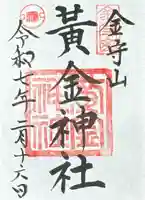 金守山
黃金神社
令和七年二月十六日